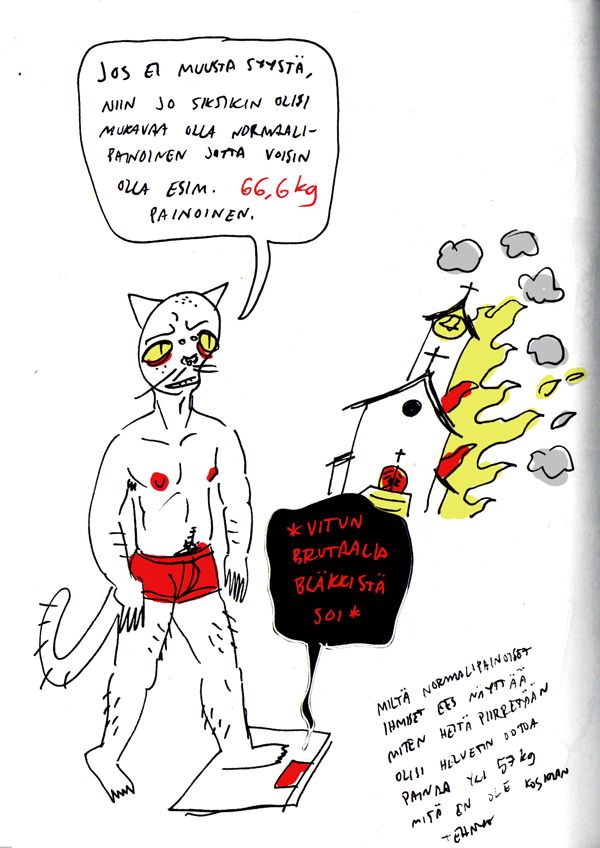 JOS EI MUUSTA SYYSTÄ,
NIIN JO SIKSIKIN OLISI
MUKAVAA OLLA NORMAALI-
PAINOINEN JOTTA VOISIN
OLLA ESIM. 66,6 kg
PAINOINEN.
*VITUN
BRUTAALIA
BLÄKKISTÄ
SOI*
MILTÄ NORMALIPAINOISET
IHMISET EES NÄYTTÄÄ
MITEN HEITÄ PIIRRETÄÄN
OLISI HELVETIN OUTOA
PAINAA YLI 57 kg
MITÄ EN OLE KOSKAAN
TEHNY